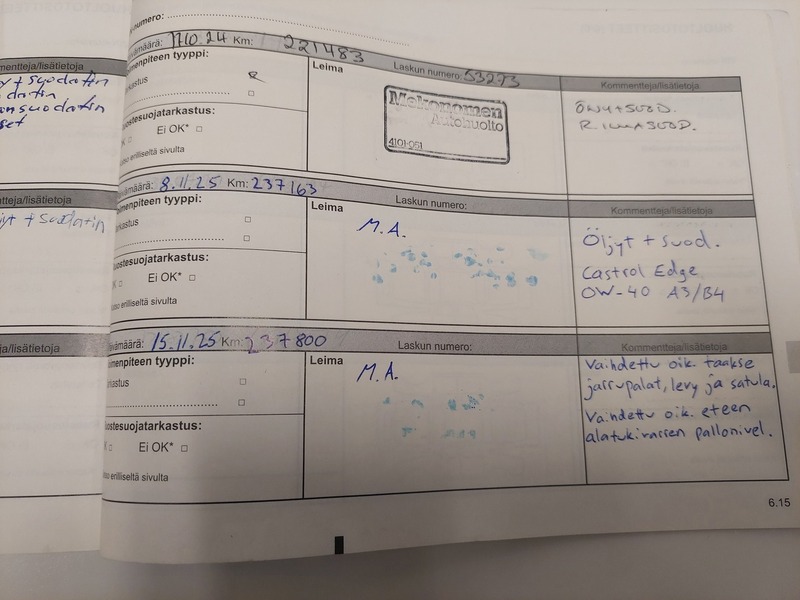 numero:
Päivämäärä: 17.10.24 Km: 221483
menpiteen tyyppi:
kastus R
Leima
Laskun numero: 53273
Kommentteja/lisätietoja
ÖLJY+SUOD.
R.ILMASUOD.
uostesuojatarkastus:
Ei OK*
oso erilliseltä sivulta
Mekonomen
Autohuolto
4101-051
määrä: 8.11.25 Km: 237163
menpiteen tyyppi:
arkastus
Leima
M.A.
Laskun numero:
Kommentteja/lisätietoja
Öljyt + suod.
Castrol Edge
0W-40 A3/B4
uostesuojatarkastus:
Ei OK*
oso erilliseltä sivulta
vämäärä: 15.11.25 Km: 237800
menpiteen tyyppi:
arkastus
Leima
M.A.
Laskun numero:
Kommentteja/lisätietoja
Vaihdettu oik. taakse
jarrupalat, levy ja satula.
Vaihdettu oik. eteen
alatukivarren pallonivel.
uostesuojatarkastus:
K Ei OK*
oso erilliseltä sivulta
6.15
mentteja/lisätietoja
y+suodatin
datin
ansuodatin
set
entteja/lisätietoja
jyt + suodatin
eja/lisätietoja